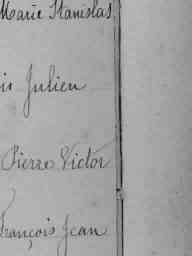 Marie Stanislas
is Julien
Pierre Victor
François Jean